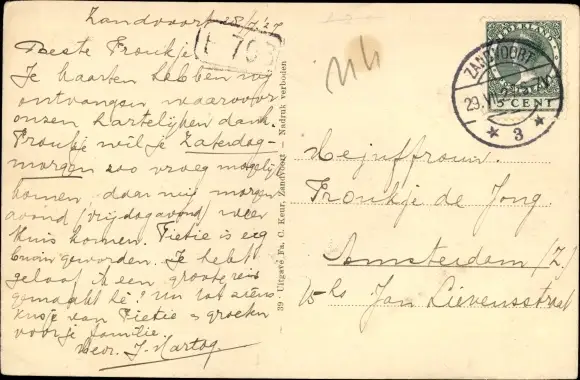 Zandvoort 28/7 '27
Beste Froukje
Je kaarten hebben wij
ontvangen waarvoor
onzen hartelijken dank.
Froukje wil je Zaterdag-
morgen zoo vroeg mogelijk
komen, daar wij morgen
avond (vrijdagavond) weer
thuis komen. Fietie is erg
bruin geworden. Je hebt
geloof ik een groote reis
gemaakt hè? Nu tot ziens
kusje van Fietie & groeten
voor je familie.
Mevr. J. Hartog.
39 Uitgave Fa. C. Keur, Zandvoort - Nadruk verboden
NEDERLAND
5 CENT
ZANDVOORT
3
Mejuffrouw
Froukje de Jong
Amsterdam (Z.)
Jan Lievensstraat